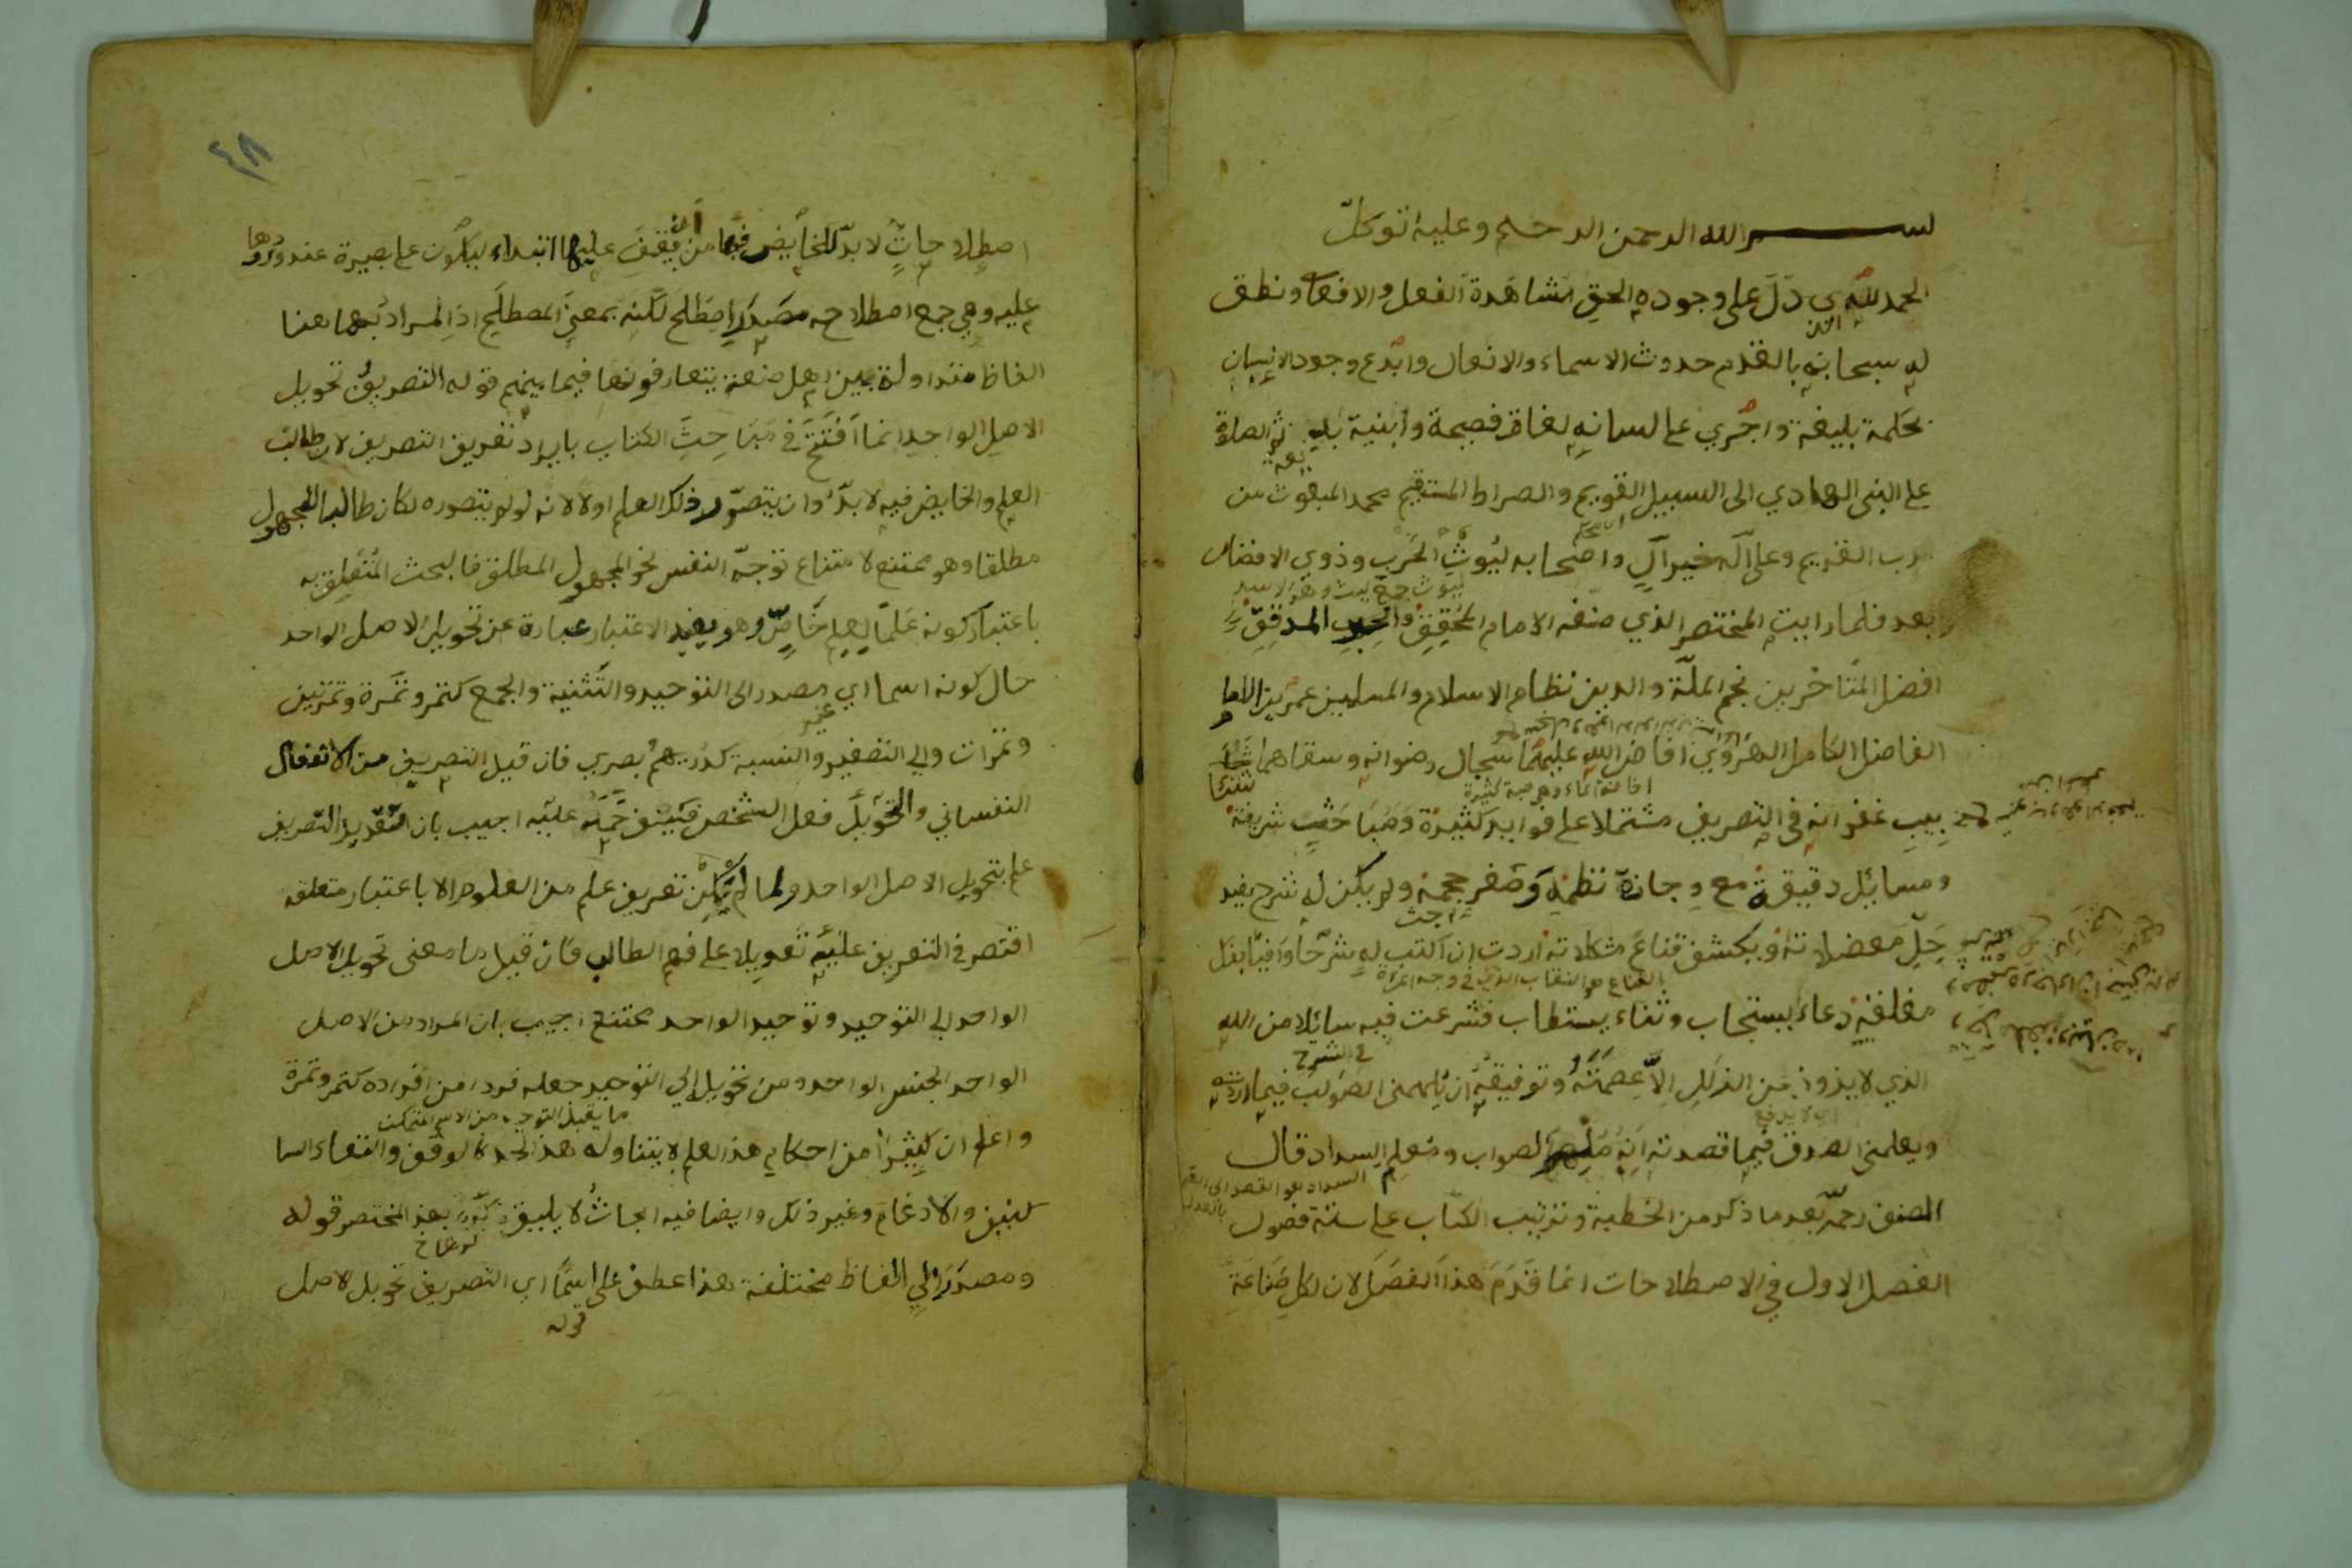 بسم الله الرحمن الرحيم وعليه اتوكل
الحمد لله الذي دل على وجوده الحق مشاهدة الفعل والافعال ونطق
له سبحانه بالقدم حدوث الاسماء والانفعال وابدع وجود الانسان
بحكمة بليغة واجري على لسانه لغات فصيحة وابنية بديعة ثم الصلوة
على النبي الهادي الى السبيل القويم والصراط المستقيم محمد المبعوث من
الرب القديم وعلى آله خير آل واصحابه ليوث الحرب وذوي الافضال
ليوث جمع ليث وهو الاسد
بعد فلما رايت المختصر الذي صنفه الامام المحقق والحبر المدقق
افضل المتأخرين نجم الملة والدين نظام الاسلام والمسلمين عمر بن الامام
الفاضل الكامل الهروي افاض الله عليهما سجال رضوانه وسقاهما
غفرانه في التصريف مشتملا على فوايد كثيرة ومباحث شريفة
ومسائل دقيقة مع وجازة نظمه وصغر حجمه ولم يكن له شرح يفيد
حل معضلاته ويكشف قناع مشكلاته اردت ان اكتب له شرحا وافيا بفك
القناع هو النقاب الذي في وجه المرأة
مغلقه دعاء يستجاب وثناء يستطاب فشرعت فيه سائلا من الله
في الشرح
الذي لا يذود عن الزلل الا عصمته وتوفيقه ان يلهمني الصواب فيما اردته
اي لا يدفع
ويعلمني الصدق فيما قصدته انه ملهم الصواب ومعلم السداد قال
السداد هو القصد
المصنف رحمه بعد ما ذكر من الخطبة وترتيب الكتاب على ستة فصول
الفصل الاول في الاصطلاحات انما قدم هذا الفصل لان لكل صناعة
٤٨
اصطلاحات لا بد للخايض فيها من ان يقف عليها ابتداء ليكون على بصيرة عند ورودها
عليه وهي جمع اصطلاح مصدر اصطلح لكنه بمعنى المصطلح اذ المراد بها هنا
الفاظ متداولة بين اهل صنعة يتعارفونها فيما بينهم قوله التصريف تحويل
الاصل الواحد انما افتتح في مباحث الكتاب بايراد تعريف التصريف لان طالب
العلم والخايض فيه لا بد وان يتصور ذلك العلم اولا لانه لو لم يتصوره لكان طالبا للمجهول
مطلقا وهو ممتنع لامتناع توجه النفس نحو المجهول المطلق فالبحث المتعلق به
باعتبار كونه علما لعلم خاص وهو بهذا الاعتبار عبارة عن تحويل الاصل الواحد
حال كونه اسما اي غير مصدر الى التوحيد والتثنية والجمع كتمر وتمرة وتمرتين
وتمرات والي التصغير والنسبة كدريهم وبصري فان قيل التصريف من الانفعال
النفساني والتحويل فعل الشخص فكيف حمله عليه اجيب بان تقدير التصريف
علم بتحويل الاصل الواحد ولما لم يمكن تعريف علم من العلوم الا باعتبار متعلقه
اقتصر في التعريف عليه تعويلا على فهم الطالب فان قيل ما معنى تحويل الاصل
الواحد الي التوحيد وتوحيد الواحد ممتنع اجيب بان المراد من الاصل
الواحد الجنس الواحد ومن تحويل الي التوحيد جعله فردا من افراده كتمر وتمرة
ما يقبل التوحيد من الاسم المتمكن
واعلم ان كثيرا من احكام هذا العلم لا يتناوله هذا الحد كالوقف والتقاء السا
كنين والادغام وغير ذلك وايضا فيه ابحاث لا يليق ذكره بهذا المختصر قوله
ومصدرا الي الفاظ مختلفة هذا عطف على اسما اي التصريف تحويل الاصل
قوله